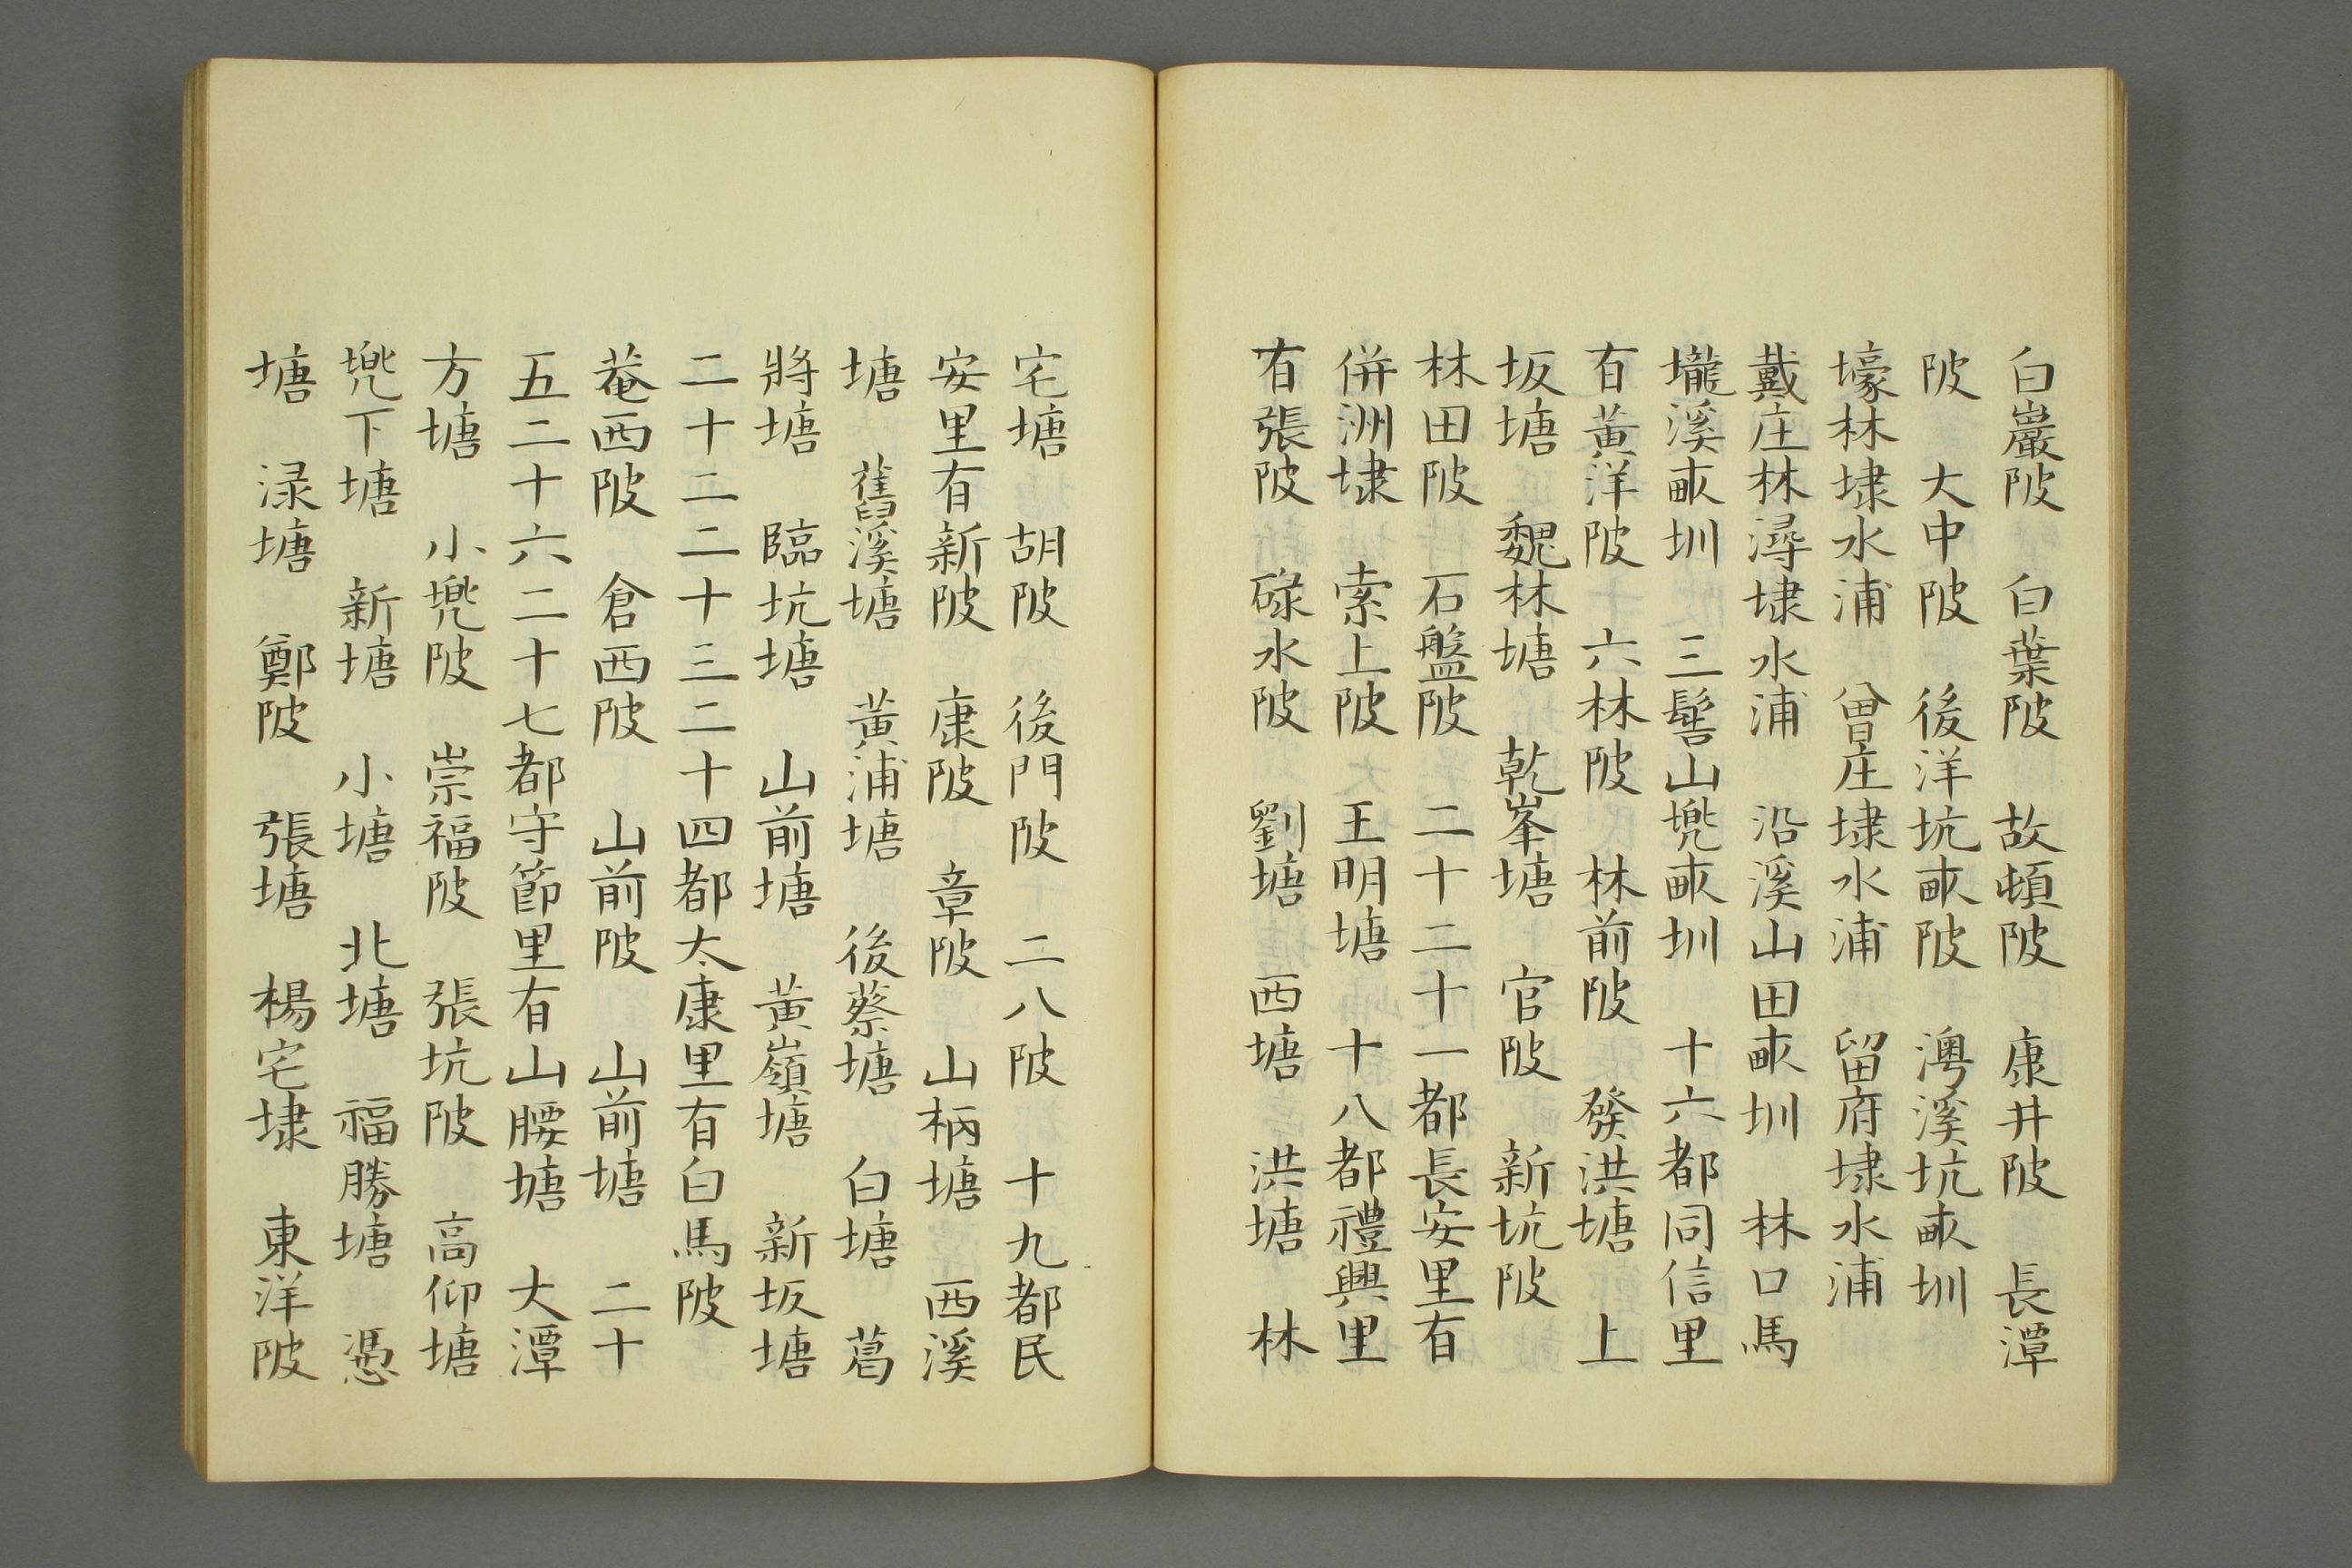 白巖陂　白葉陂　故頓陂　康井陂　長潭
陂　大中陂　後洋坑畎陂　澳溪坑畎圳
壕林埭水浦　曾庄埭水浦　留府埭水浦
戴庄林潯埭水浦　沿溪山田畎圳　林口馬
壠溪畎圳　三髻山㙜畎圳　十六都同信里
有黃洋陂　六林陂　林前陂　發洪塘　上
坂塘　魏林塘　乾峯塘　官陂　新坑陂
林田陂　石盤陂　二十二十一都長安里有
併洲埭　索上陂　王明塘　十八都禮興里
有張陂　碌水陂　劉塘　西塘　洪塘　林
宅塘　胡陂　後門陂　二八陂　十九都民
安里有新陂　康陂　章陂　山柄塘　西溪
塘　舊溪塘　黃浦塘　後蔡塘　白塘　葛
將塘　臨坑塘　山前塘　黃嶺塘　新坂塘
二十二二十三二十四都太康里有白馬陂
菴西陂　倉西陂　山前陂　山前塘　二十
五二十六二十七都守節里有山腰塘　大潭
方塘　小㙜陂　崇福陂　張坑陂　高仰塘
㙜下塘　新塘　小塘　北塘　福勝塘　憑
塘　渌塘　鄭陂　張塘　楊宅埭　東洋陂